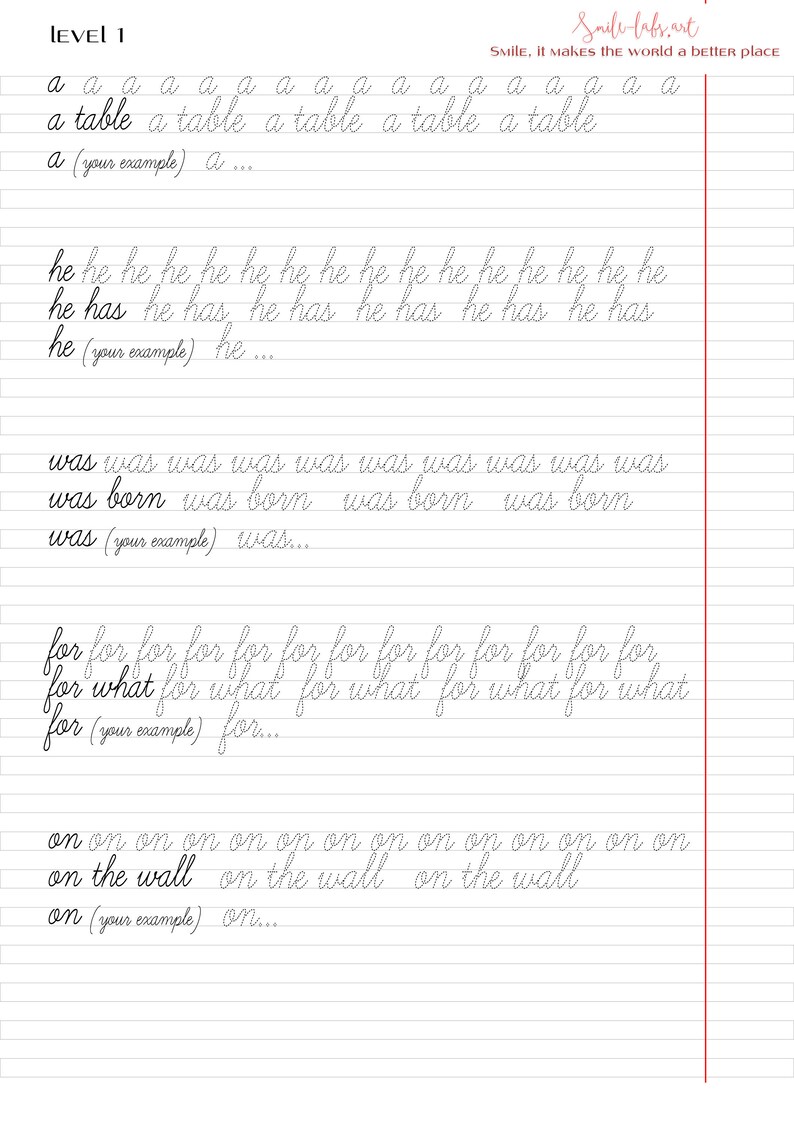 LEVEL 1
Smile-labs.art
Smile, it makes the world a better place
a a a a a a a a a a a a a a a a a
a table a table a table a table a table
a (your example) a ...
he he he he he he he he he he he he he he he he
he has he has he has he has he has he has
he (your example) he ...
was was was was was was was was was was
was born was born was born was born
was (your example) was...
for for for for for for for for for for for for for
for what for what for what for what for what
for (your example) for...
on on on on on on on on on on on on on on
on the wall on the wall on the wall
on (your example) on...